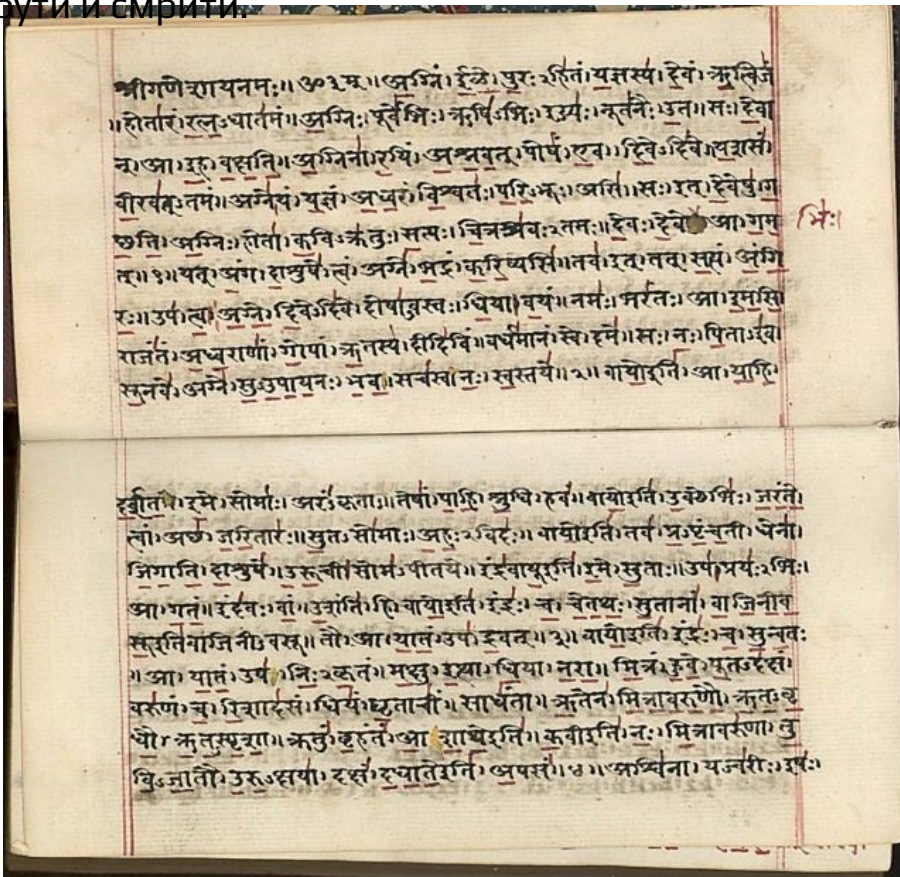 рути и смрити.
श्रीगणेशायनमः॥ॐ३म्॥अग्निं।ईळे।पुरःऽहितं।यज्ञस्य।देवं।ऋत्विजं
॥होतारं।रत्नऽधातमं॥अग्निः।पूर्वेभिः।ऋषिऽभिः।ईड्यः।नूतनैः।उत॥सः।देवा
न्।आ।इह।वक्षति॥अग्निना।रयिं।अश्नवत्।पोषं।एव।दिवेऽदिवे॥यशसं
वीरवत्ऽतमं॥अग्नेयं।यज्ञं।अध्वरं।विश्वतः।परिऽभूः।असि॥सः।इत्।देवेषु।ग
छति।अग्निः।होता।कविऽक्रतुः।सत्यः।चित्रश्रवःऽतमः॥देवः।देवे आ।गम
भिः।
त्॥१॥यत्।अंग।दाशुषे।त्वं।अग्ने।भद्रं।करिष्यसि॥तव।इत्।तत्।सत्यं।अंगि
रः॥उप।त्वा।अग्ने।दिवेऽदिवे।दोषाऽवस्तः।धिया।वयं॥नमः।भरंतः।आ।इमसि
राजंतं।अध्वराणां।गोपां।ऋतस्य।दीदिविं॥वर्धमानं।स्वे।दमे॥सः।नः।पिताऽइव
सूनवे।अग्ने।सुऽउपायनः।भव॥सचस्व।नः।स्वस्तये॥२॥वायोइति।आ।याहि
दर्शत।इमे।सोमाः।अरंऽकृताः॥तेषां।पाहि।श्रुधि।हवं॥वायोइति।उक्थेभिः।जरंते
त्वां।अछ।जरितारः॥सुतऽसोमाः।अहःऽविदः॥वायोइति।तव।प्रऽपृंचती।धेना।
जिगाति।दाशुषे॥उरूची।सोमऽपीतये॥इंद्रवायूइति।इमे।सुताः॥उप।प्रयःऽभिः।
आ।गतं॥इंदवः।वां।उशंति।हि॥वायोइति।इंद्रः।च।चेतथः।सुतानां।वाजिनीव
सूइतिवाजिनीऽवसू॥तौ।आ।यातं।उप।द्रवत्॥३॥वायोइति।इंद्रः।च।सुन्वतः
॥आ।यातं।उप।निःऽकृतं॥मक्षु।इत्था।धिया।नरा॥मित्रं।हुवे।पूतऽदक्षं।
वरुणं।च।रिशादसं।धियं।घृताचीं।साधंता॥ऋतेन।मित्रावरुणौ।ऋतऽवृ
धौ।ऋतऽस्पृशा॥क्रतुं।बृहंतं।आशाथेइति॥कवीइति।नः।मित्रावरुणा।तु
विऽजातौ।उरुऽक्षया।दक्षं।दधातेइति।अपसं॥४॥अश्विना।यज्वरीः।इषः।